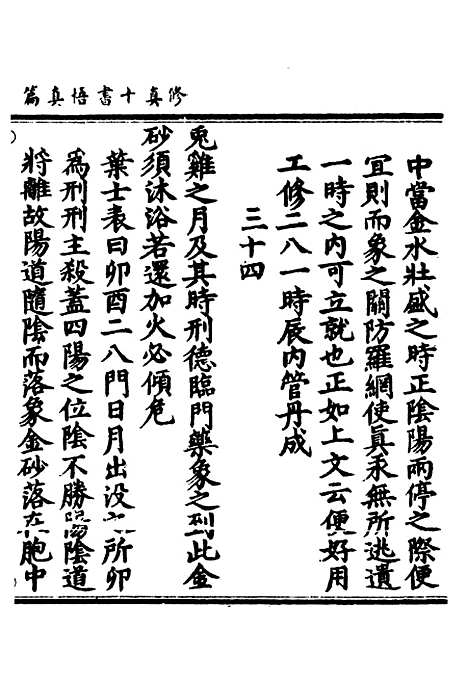 修真十書悟真篇
中當金水壯盛之時正陰陽兩停之際便
宜則而象之關防羅網使真汞無所逃遺
一時之內可立就也正如上文云便好用
工修二八一時辰內管丹成
三十四
兎雞之月及其時刑德臨門藥象之到此金
砂須沐浴若還加火必傾危
葉士表曰卯酉二八門日月出没之所卯
為刑刑主殺蓋四陽之位陰不勝陽陰道
將離故陽道隨陰而落象金砂落在胞中